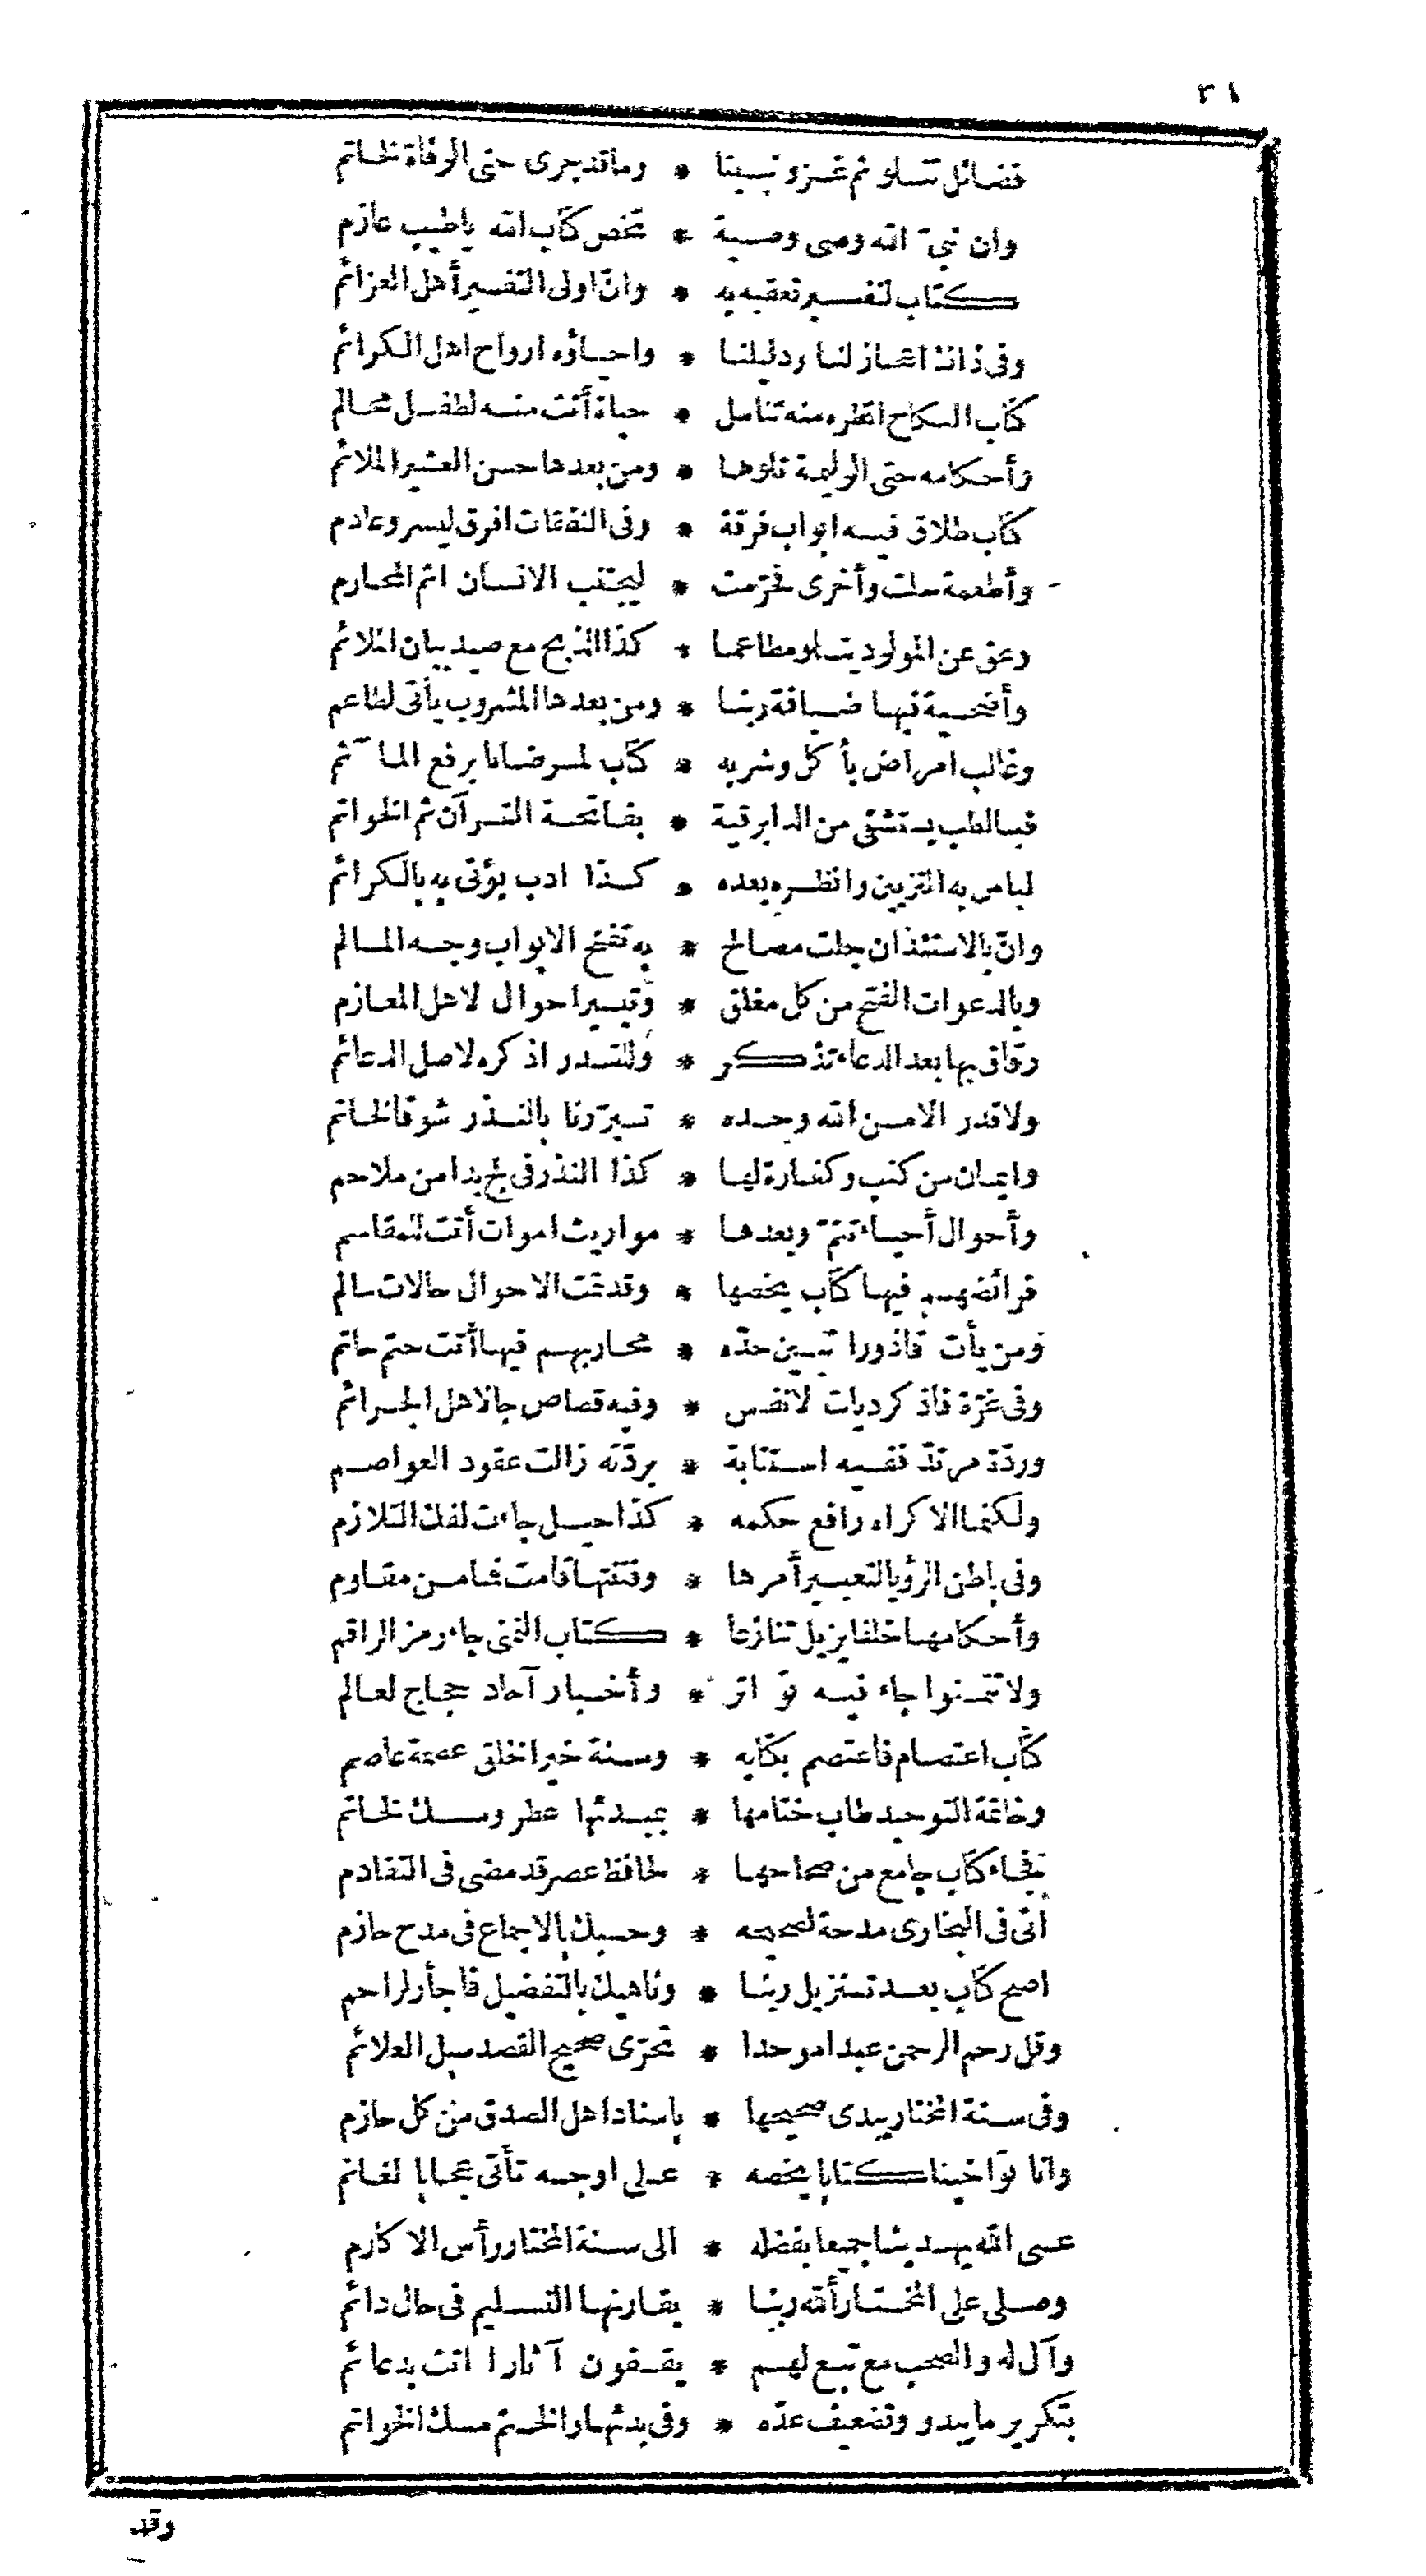 ٣١
فضائل تتلو ثم غزو نبينا * وما قد جرى حتى الوفاة لخاتم
وان نبيّ الله وصى وصية * تخص كتاب الله ياطيب عازم
كتاب لتفسير تعقبه به * وانّ اولى التفسير أهل العزائم
وفى ذاك اعجاز لنا ودليلنا * واحياؤه ارواح اهل الكرائم
كتاب النكاح انظره منه تناسل * حياة أتت منه لطفل محالم
وأحكامه حتى الوليمة تلوها * ومن بعدها حسن العشير الملائم
كتاب طلاق فيه ابواب فرقة * وفى النفقات افرق ليسر وعادم
وأطعمة حلت وأخرى فحرّمت * ليجتنب الانسان اثم المحارم
وعق عن المولود يتلو مطاعما * كذا الذبح مع صيد بيان الملائم
وأضحية فيها ضيافة ربنا * ومن بعدها المشروب يأتى لطاعم
وغالب امراض بأكل وشربه * كتاب لمرضانا برفع المآثم
فبالطب يستشفى من الدا برقية * بفاتحة القرآن ثم الخواتم
لباس به التزيين وانظره بعده * كذا ادب يؤتى به بالكرائم
وانّ بالاستئذان جلت مصالح * به تفتح الابواب وجه المسالم
وبالدعوات الفتح من كل مغلق * وتيسير احوال لاهل المعازم
رقاق بها بعد الدعاء تذكر * وللقدر اذكره لاصل الدعائم
ولا قدر الا من الله وحده * تبرّرنا بالنذر شوقا لخاتم
وايمان من كتب وكفارة لها * كذا النذر فى لج بدا من ملاحم
وأحوال أحياء تتمّ وبعدها * مواريث اموات أتت للمقاسم
فرائضهم فيها كتاب يخصها * وقد تمت الاحوال حالات سالم
ومن يأت قاذورا تبين حدّه * محاربهم فيها أتت حتم حاتم
وفى غرّة فاذكر ديات لانفس * وفيه قصاص جا لاهل الجرائم
وردّة مرتدّ ففيه استتابة * بردّته زالت عقود العواصم
ولكنما الاكراه رافع حكمه * كذا حيل جاءت لفك التلازم
وفى باطن الرؤيا لتعبير أمرها * وفتنتها قامت فما من مقاوم
وأحكامها خلفا يزيل تنازعا * كتاب التمنى جاء رمز الراقم
ولا تتمنوا جاء فيه تواتر * وأخبار آحاد حجاج لعالم
كتاب اعتصام فاعتصم بكتابه * وسنة خير الخلق عصمة عاصم
وخاتمة التوحيد طاب ختامها * بمبدئها عطر ومسك لخاتم
فجاء كتاب جامع من صحاحها * لحافظ عصر قد مضى فى التقادم
اتى فى البخارى مدحة لصحيحه * وحسبك بالاجماع فى مدح حازم
اصح كتاب بعد تنزيل ربنا * وناهيك بالتفضيل فاجأر لراحم
وقل رحم الرحمن عبدا موحدا * تحرّى صحيح القصد سبل العلائم
وفى سنة المختار يبدى صحيحها * باسناد اهل الصدق من كل حازم
وانا تواخينا كتابا يخصه * على اوجه تأتى عجابا لغانم
عسى الله يهدينا جميعا بفضله * الى سنة المختار رأس الاكارم
وصلى على المختار أله ربنا * يقارنها التسليم فى حال دائم
وآل له والصحب مع تبع لهم * يقفون آثارا اتت بدعائم
بتكرير ما يبدو وتضعيف عدّه * وفى بدئها والختم مسك الخواتم
وقد